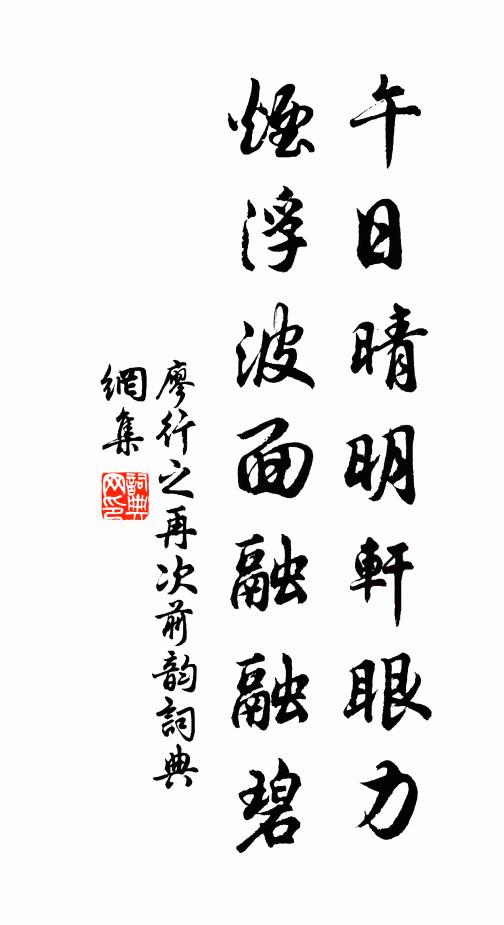 午日晴明軒眼力
煙浮波面融融碧
廖行之再次前韵詞典
網集
詞典網印